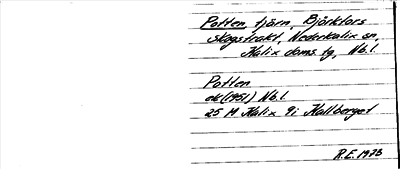 Potten, tjärn, Björkfors
skogstrakt, Nederkalix sn,
Kalix doms. tg, Nb.l.
Potten
ek (1951) Nb.l.
25 M Kalix 9i Kallberget
R.E. 1928